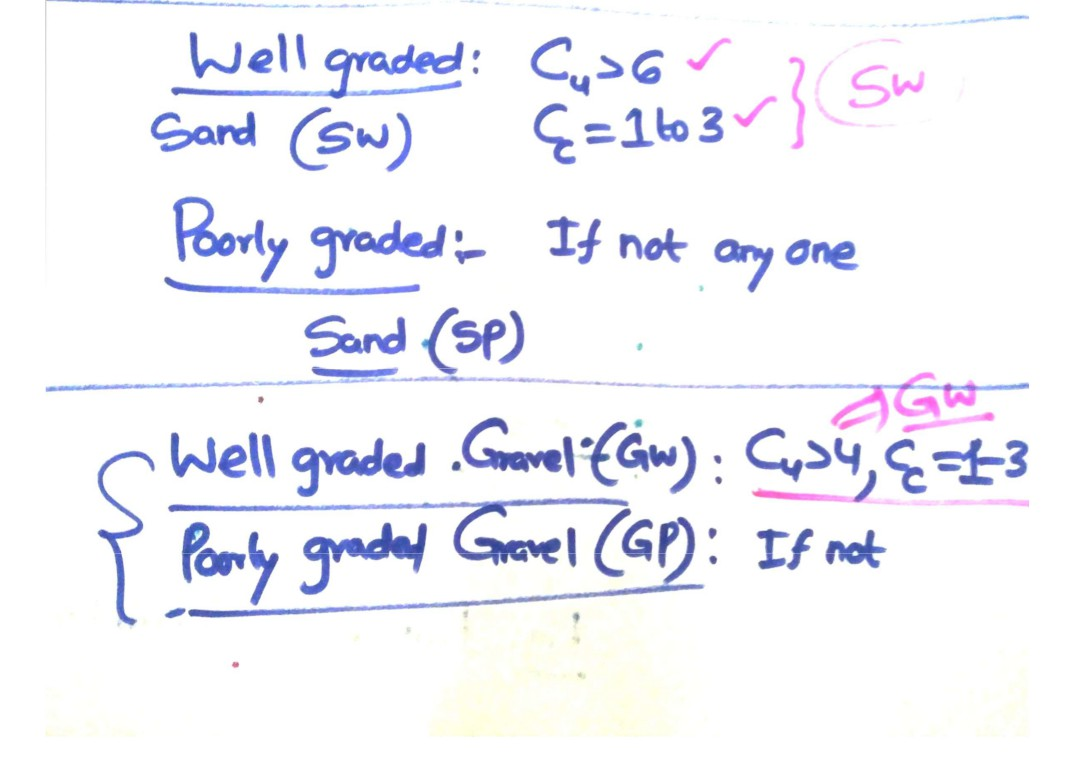 Well graded: Cu>6 ✓ } SW
Sand (SW) Cc=1 to 3 ✓
Poorly graded:- If not any one
Sand (SP)
GW
Well graded Gravel (GW): Cu>4, Cc=1-3
Poorly graded Gravel (GP): If not